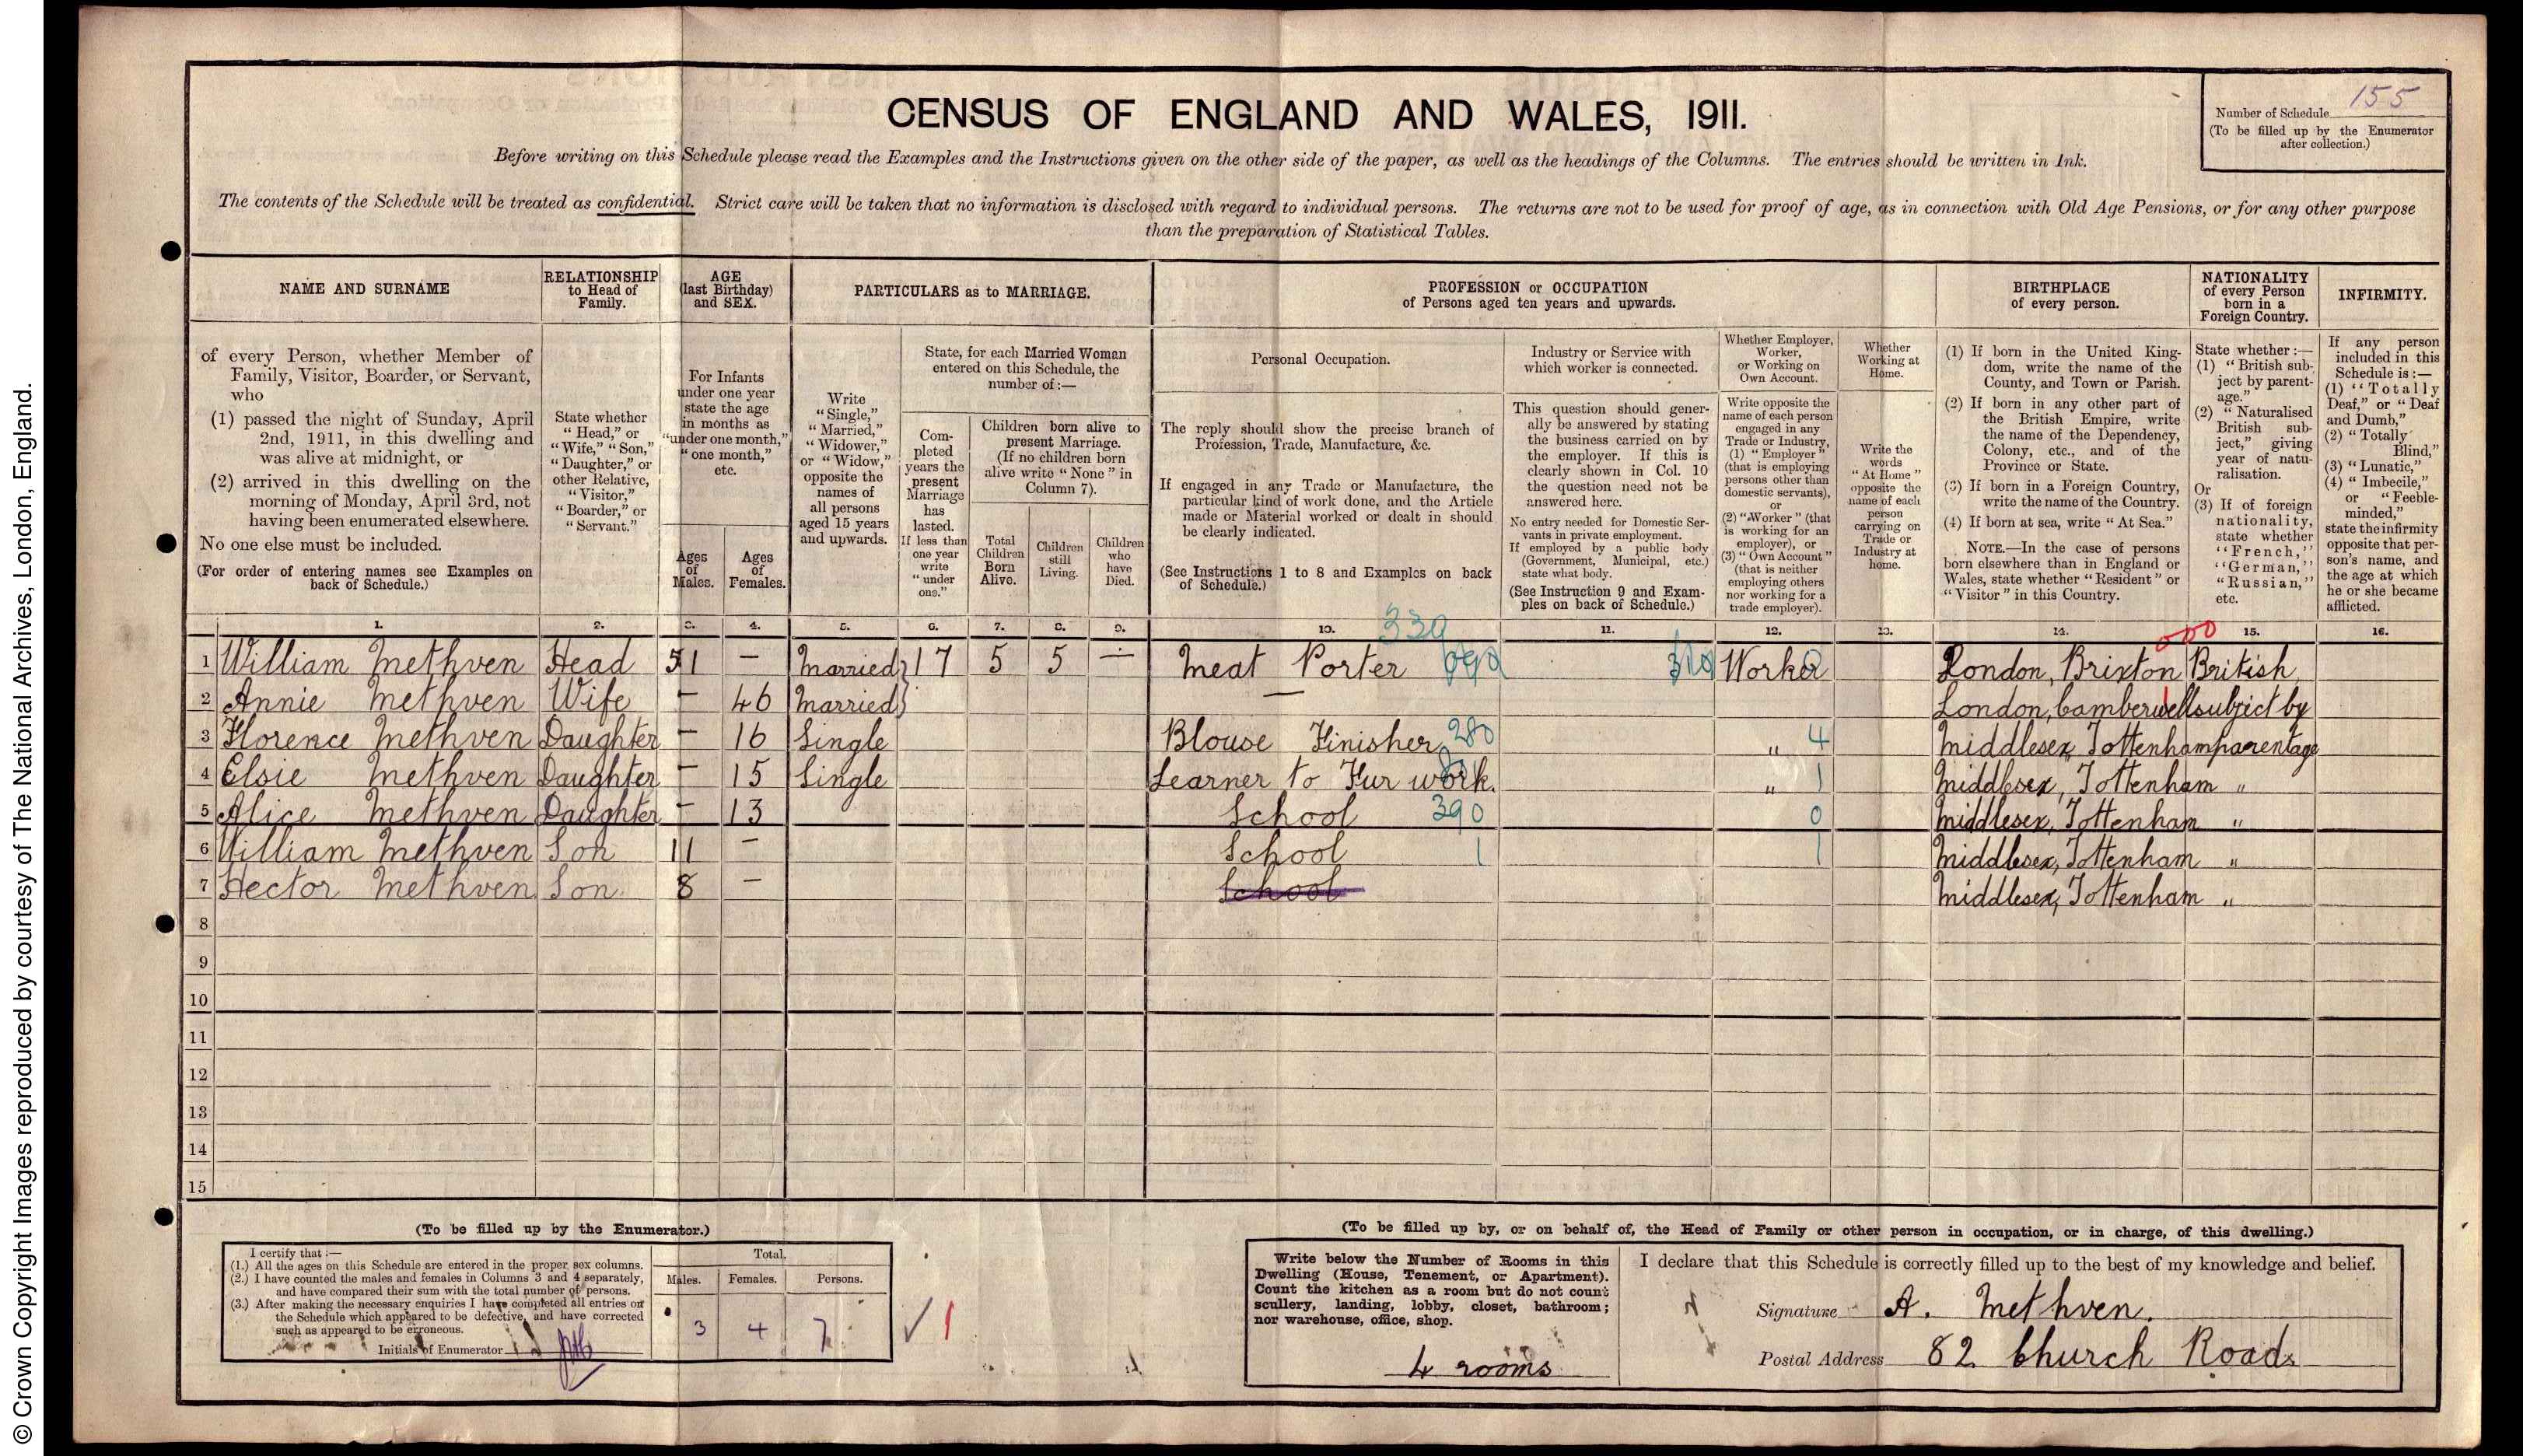 © Crown Copyright Images reproduced by courtesy of The National Archives, London, England.
CENSUS OF ENGLAND AND WALES, 1911.
Number of Schedule 155
(To be filled up by the Enumerator
after collection.)
Before writing on this Schedule please read the Examples and the Instructions given on the other side of the paper, as well as the headings of the Columns. The entries should be written in Ink.
The contents of the Schedule will be treated as confidential. Strict care will be taken that no information is disclosed with regard to individual persons. The returns are not to be used for proof of age, as in connection with Old Age Pensions, or for any other purpose
than the preparation of Statistical Tables.
NAME AND SURNAME
of every Person, whether Member of
Family, Visitor, Boarder, or Servant,
who
(1) passed the night of Sunday, April
2nd, 1911, in this dwelling and
was alive at midnight, or
(2) arrived in this dwelling on the
morning of Monday, April 3rd, not
having been enumerated elsewhere.
No one else must be included.
(For order of entering names see Examples on
back of Schedule.)
RELATIONSHIP
to Head of
Family.
State whether
"Head," or
"Wife," "Son,"
"Daughter," or
other Relative,
"Visitor,"
"Boarder," or
"Servant."
AGE
(last Birthday)
and SEX.
For Infants
under one year
state the age
in months as
"under one month,"
"one month,"
etc.
Ages
of
Males.
Ages
of
Females.
PARTICULARS as to MARRIAGE.
Write
"Single,"
"Married,"
"Widower,"
or "Widow,"
opposite the
names of
all persons
aged 15 years
and upwards.
State, for each Married Woman
entered on this Schedule, the
number of:—
Com-
pleted
years the
present
Marriage
has
lasted.
If less than
one year
write
"under
one."
Children born alive to
present Marriage.
(If no children born
alive write "None" in
Column 7).
Total
Children
Born
Alive.
Children
still
Living.
Children
who
have
Died.
PROFESSION or OCCUPATION
of Persons aged ten years and upwards.
Personal Occupation.
The reply should show the precise branch of
Profession, Trade, Manufacture, &c.
If engaged in any Trade or Manufacture, the
particular kind of work done, and the Article
made or Material worked or dealt in should
be clearly indicated.
(See Instructions 1 to 8 and Examples on back
of Schedule.)
Industry or Service with
which worker is connected.
This question should gener-
ally be answered by stating
the business carried on by
the employer. If this is
clearly shown in Col. 10
the question need not be
answered here.
No entry needed for Domestic Ser-
vants in private employment.
If employed by a public body
(Government, Municipal, etc.)
state what body.
(See Instruction 9 and Exam-
ples on back of Schedule.)
Whether Employer,
Worker,
or Working on
Own Account.
Write opposite the
name of each person
engaged in any
Trade or Industry,
(1) "Employer"
(that is employing
persons other than
domestic servants),
or
(2) "Worker" (that
is working for an
employer), or
(3) "Own Account"
(that is neither
employing others
nor working for a
trade employer).
Whether
Working at
Home.
Write the
words
"At Home"
opposite the
name of each
person
carrying on
Trade or
Industry at
home.
BIRTHPLACE
of every person.
(1) If born in the United King-
dom, write the name of the
County, and Town or Parish.
(2) If born in any other part of
the British Empire, write
the name of the Dependency,
Colony, etc., and of the
Province or State.
(3) If born in a Foreign Country,
write the name of the Country.
(4) If born at sea, write "At Sea."
NOTE.—In the case of persons
born elsewhere than in England or
Wales, state whether "Resident" or
"Visitor" in this Country.
NATIONALITY
of every Person
born in a
Foreign Country.
State whether:—
(1) "British sub-
ject by parent-
age."
(2) "Naturalised
British sub-
ject," giving
year of natu-
ralisation.
Or
(3) If of foreign
nationality,
state whether
"French,"
"German,"
"Russian,"
etc.
INFIRMITY.
If any person
included in this
Schedule is:—
(1) "Totally
Deaf," or "Deaf
and Dumb,"
(2) "Totally
Blind,"
(3) "Lunatic,"
(4) "Imbecile,"
or "Feeble-
minded,"
state the infirmity
opposite that per-
son's name, and
the age at which
he or she became
afflicted.
1. 2. 3. 4. 5. 6. 7. 8. 9. 10. 330 11. 12. 13. 14. 000 15. 16.
1 William Methven Head 51 – Married 17 5 5 – Meat Porter Worker London, Brixton British
2 Annie Methven Wife – 46 Married – London, Camberwell subject by
3 Florence Methven Daughter – 16 Single Blouse Finisher 280 " 4 Middlesex, Tottenham parentage
4 Elsie Methven Daughter – 15 Single Learner to Fur work. " 1 Middlesex, Tottenham "
5 Alice Methven Daughter – 13 School 390 0 Middlesex, Tottenham "
6 William Methven Son 11 – School 1 1 Middlesex, Tottenham "
7 Hector Methven Son 8 – School Middlesex, Tottenham "
8
9
10
11
12
13
14
15
(To be filled up by the Enumerator.)
I certify that:—
(1.) All the ages on this Schedule are entered in the proper sex columns.
(2.) I have counted the males and females in Columns 3 and 4 separately,
and have compared their sum with the total number of persons.
(3.) After making the necessary enquiries I have completed all entries on
the Schedule which appeared to be defective, and have corrected
such as appeared to be erroneous.
Initials of Enumerator
Total.
Males. Females. Persons.
3 4 7
(To be filled up by, or on behalf of, the Head of Family or other person in occupation, or in charge, of this dwelling.)
Write below the Number of Rooms in this
Dwelling (House, Tenement, or Apartment).
Count the kitchen as a room but do not count
scullery, landing, lobby, closet, bathroom;
nor warehouse, office, shop.
4 rooms
I declare that this Schedule is correctly filled up to the best of my knowledge and belief.
Signature A. Methven.
Postal Address 82 Church Road.